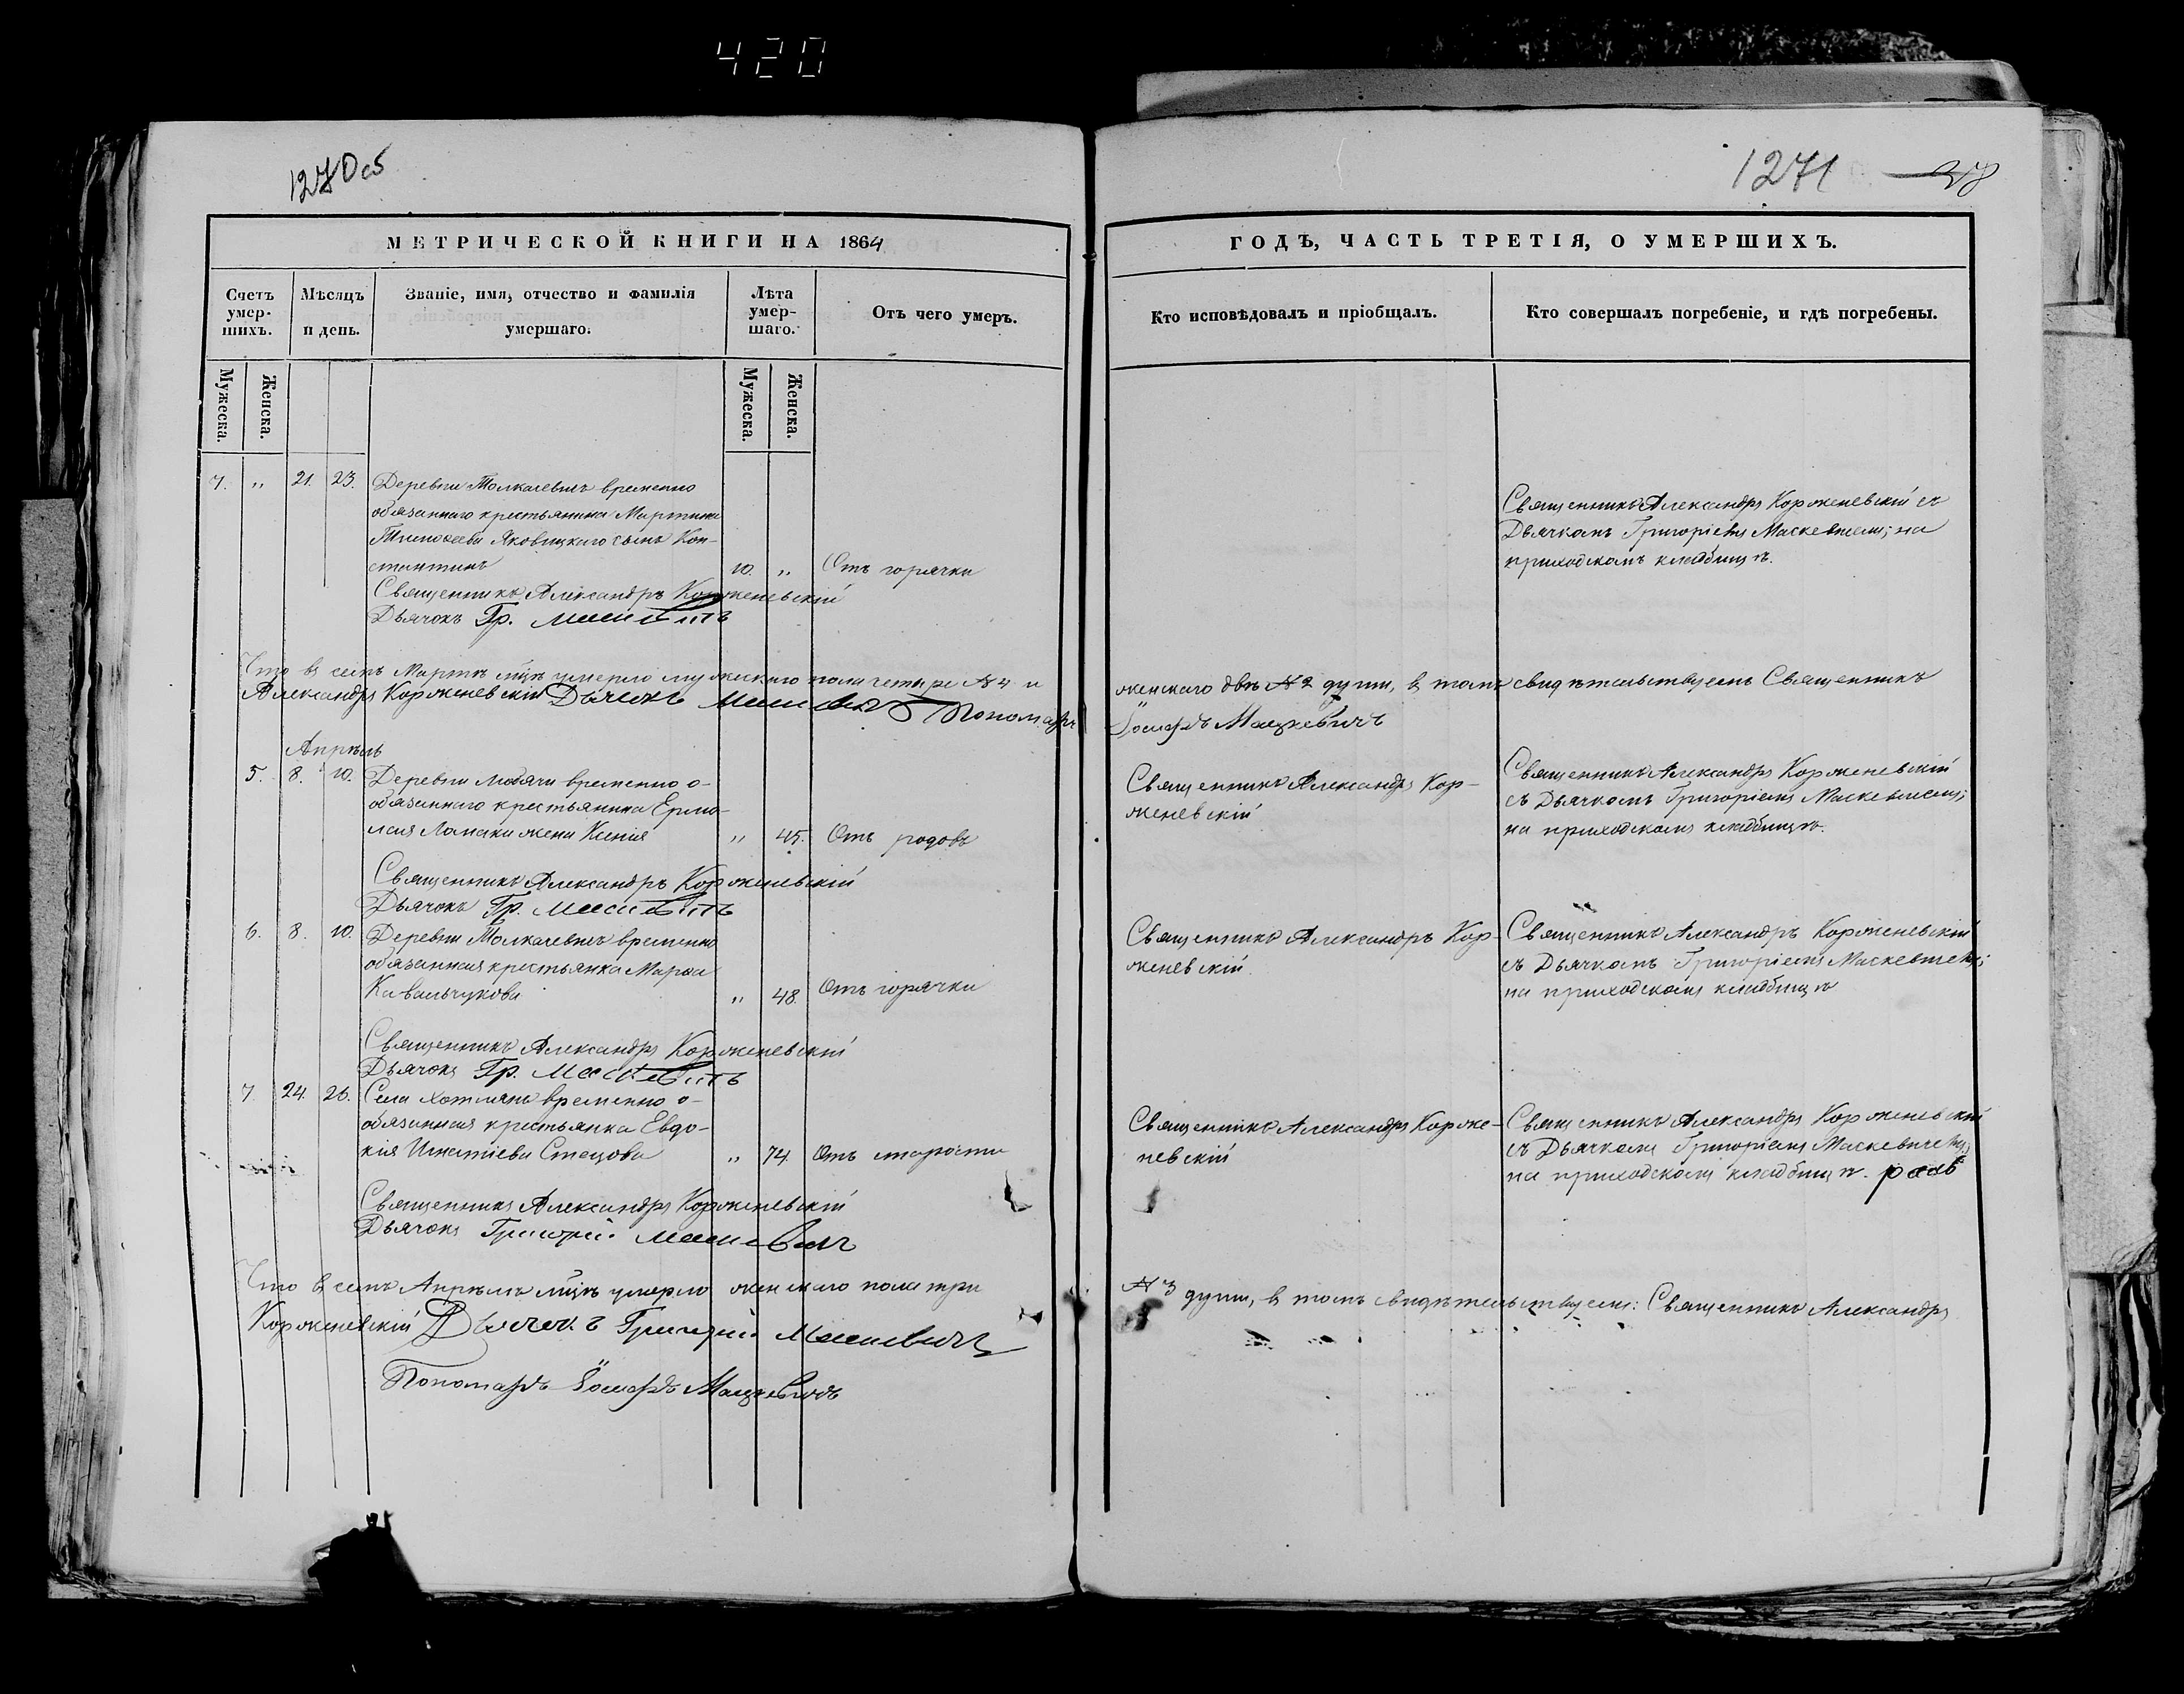 420
1270 об
1271 28
МЕТРИЧЕСКОЙ КНИГИ НА 1864
ГОДЪ, ЧАСТЬ ТРЕТІЯ, О УМЕРШИХЪ.
Счетъ умер-шихъ.
Мѣсяцъ и день.
Званіе, имя, отчество и фамилія умершаго.
Лѣта умер-шаго.
Отъ чего умеръ.
Кто исповѣдовалъ и пріобщалъ.
Кто совершалъ погребеніе, и гдѣ погребены.
Мужеска.
Женска.
Мужеска.
Женска.
7. " 21. 23. Деревни Толкачевичъ временно
обязаннаго крестьянина Мартина
Тимоѳеева Яковицкаго сынъ Кон-
стантинъ 10. " Отъ горячки
Священникъ Александръ Корженевскій
Дьячокъ Гр. Маскевичъ
Священникъ Александръ Корженевскій съ
Дьячкомъ Григоріемъ Маскевичемъ; на
приходскомъ кладбищѣ.
Что въ семъ Мартѣ мцѣ умерло мужескаго пола четыре №4 и
женскаго двѣ №2 души, въ томъ свидѣтельствуемъ Священникъ
Александръ Корженевскій Дьячокъ Маскевичъ Пономарь
Іосифъ Мацкевичъ
Апрѣль
5. 8. 10. Деревни Людячи временно о-
обязаннаго крестьянина Ермо-
лая Ломаки жена Ксенія " 45. Отъ родовъ
Священникъ Александръ Корженевскій
Дьячокъ Гр. Маскевичъ
Священникъ Александръ Кор-
женевскій
Священникъ Александръ Корженевскій
съ Дьячкомъ Григоріемъ Маскевичемъ;
на приходскомъ кладбищѣ.
6. 8. 10. Деревни Толкачевичъ временно
обязанная крестьянка Марѳа
Кавальчукова " 48. Отъ горячки
Священникъ Александръ Корженевскій
Дьячокъ Гр. Маскевичъ
Священникъ Александръ Кор-
женевскій.
Священникъ Александръ Корженевскій
съ Дьячкомъ Григоріемъ Маскевичемъ;
на приходскомъ кладбищѣ
7. 24. 26. Села Хотлянъ временно о-
обязанная крестьянка Евдо-
кія Игнатіева Стецова " 74. Отъ старости
Священникъ Александръ Корженевскій
Дьячокъ Григорій Маскевичъ
Священникъ Александръ Корже-
невскій
Священникъ Александръ Корженевскій
съ Дьячкомъ Григоріемъ Маскевичемъ;
на приходскомъ кладбищѣ.
Что въ семъ Апрѣлѣ мцѣ умерло женскаго пола три
№3 души, въ томъ свидѣтельствуемъ: Священникъ Александръ
Корженевскій Дьячокъ Григорій Маскевичъ
Пономарь Іосифъ Мацкевичъ